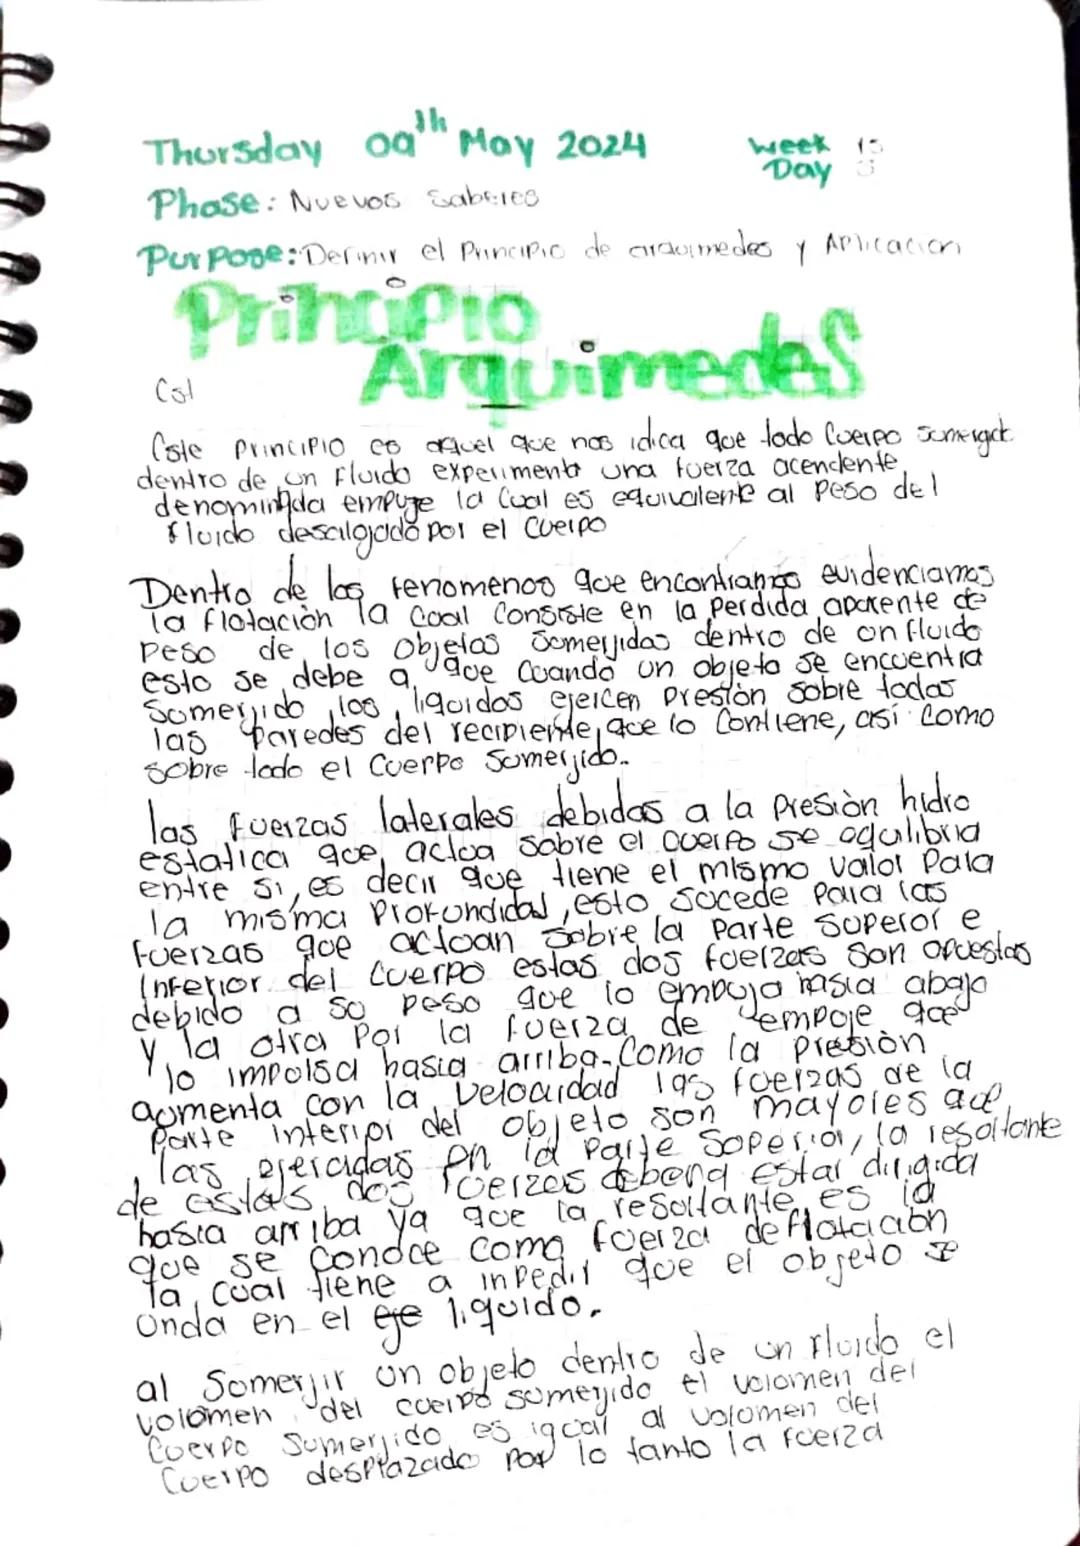 Thursday 09th May 2024
Week 15
Day 3
Phase: Nuevos Saberes
Purpose: Definir el Principio de arquimedes y Aplicacion
Principio
Arquimedes
Cst
Este Principio es aquel que nos idica que todo Cuerpo Sumergid
dentro de un Fluido experimenta una fuerza acendente
denominada empuje la Cual es equivalente al Peso del
fluido desalgojado por el Cuerpo
Dentro de los fenomenos que encontramos evidenciamos
la flotaciòn la Coal Consiste en la Perdida aparente de
Peso de los Objetos Somerjidos dentro de on fluido
esto se debe a que Cuando un objeto se encuentra
Somerjido los liquidos ejercen Presiòn Sobre todas
las Paredes del recipiente, que lo Contiene, así Como
Sobre todo el Cuerpo Somerjido.
las fuerzas laterales debidas a la Presiòn hidro
estatica que actua Sobre el Cuerpo se equlibria
entre si, es decir que tiene el mismo valor Para
la misma Profundidad, esto Socede Para las
fuerzas que actoan Sobre la Parte Superor e
Inferior del Cuerpo estas dos fuerzas Son opuestas
debido a so Peso que lo empuja hasia abajo
y la otra Por la fuerza de empoje que
lo impolsa hasia arriba. Como la Presiòn
aomenta con la Velocidad las foerzas de la
Parte interior del objeto son mayores que
las ejercidas en la Parte Soperior, la resoltante
de estas dos foerzas debena estar dirigida
hasia arriba ya que la resoltante es la
que se Conoce como foerza de flotacion
la Coal tiene a inpedir que el objeto se
Unda en el eje liquido.
al Somerjir on objeto dentro de un fluido el
volomen del cuerpo somerjido el volomen del
Cuerpo Sumerjido es igoal al volomen del
Cuerpo desplazado Por lo tanto la fuerza